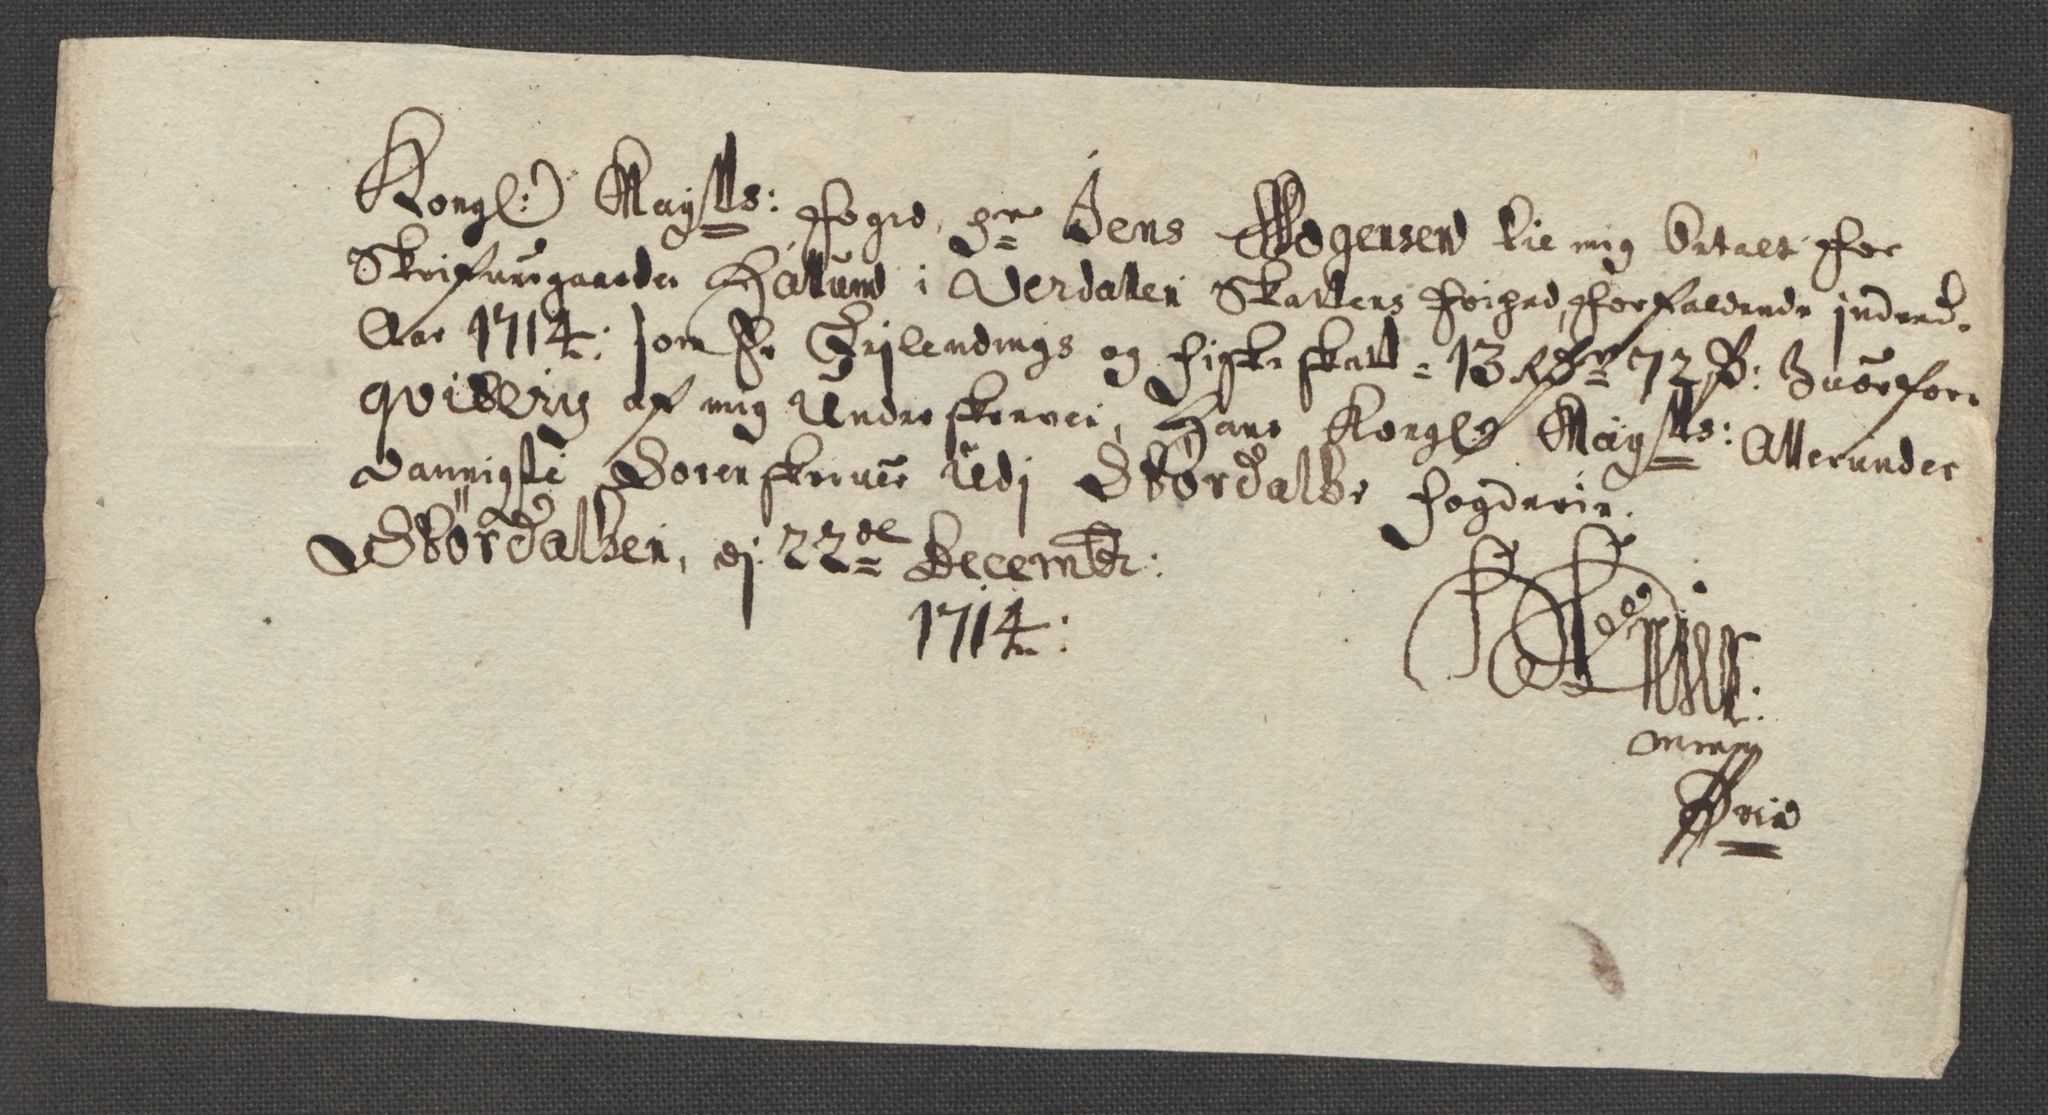 Kongl: May:tts: Foged, hr: Jens Mogensen til mig betalt for
Skrifuergaarden Hallum i Verdallen Skattens frihed, forfaldende indeved.
Aar 1714: som er Frjlendings og fiske skatt = 13 Rdr 72 s: Huorfor
qviteris af mig Underskrevne, Hans Kongl: May:tts: Allerunder
dannigste Sorenskriuer Udj Størdals Fogderie.
Størdallen, dj. 22de Decembr:
1714: